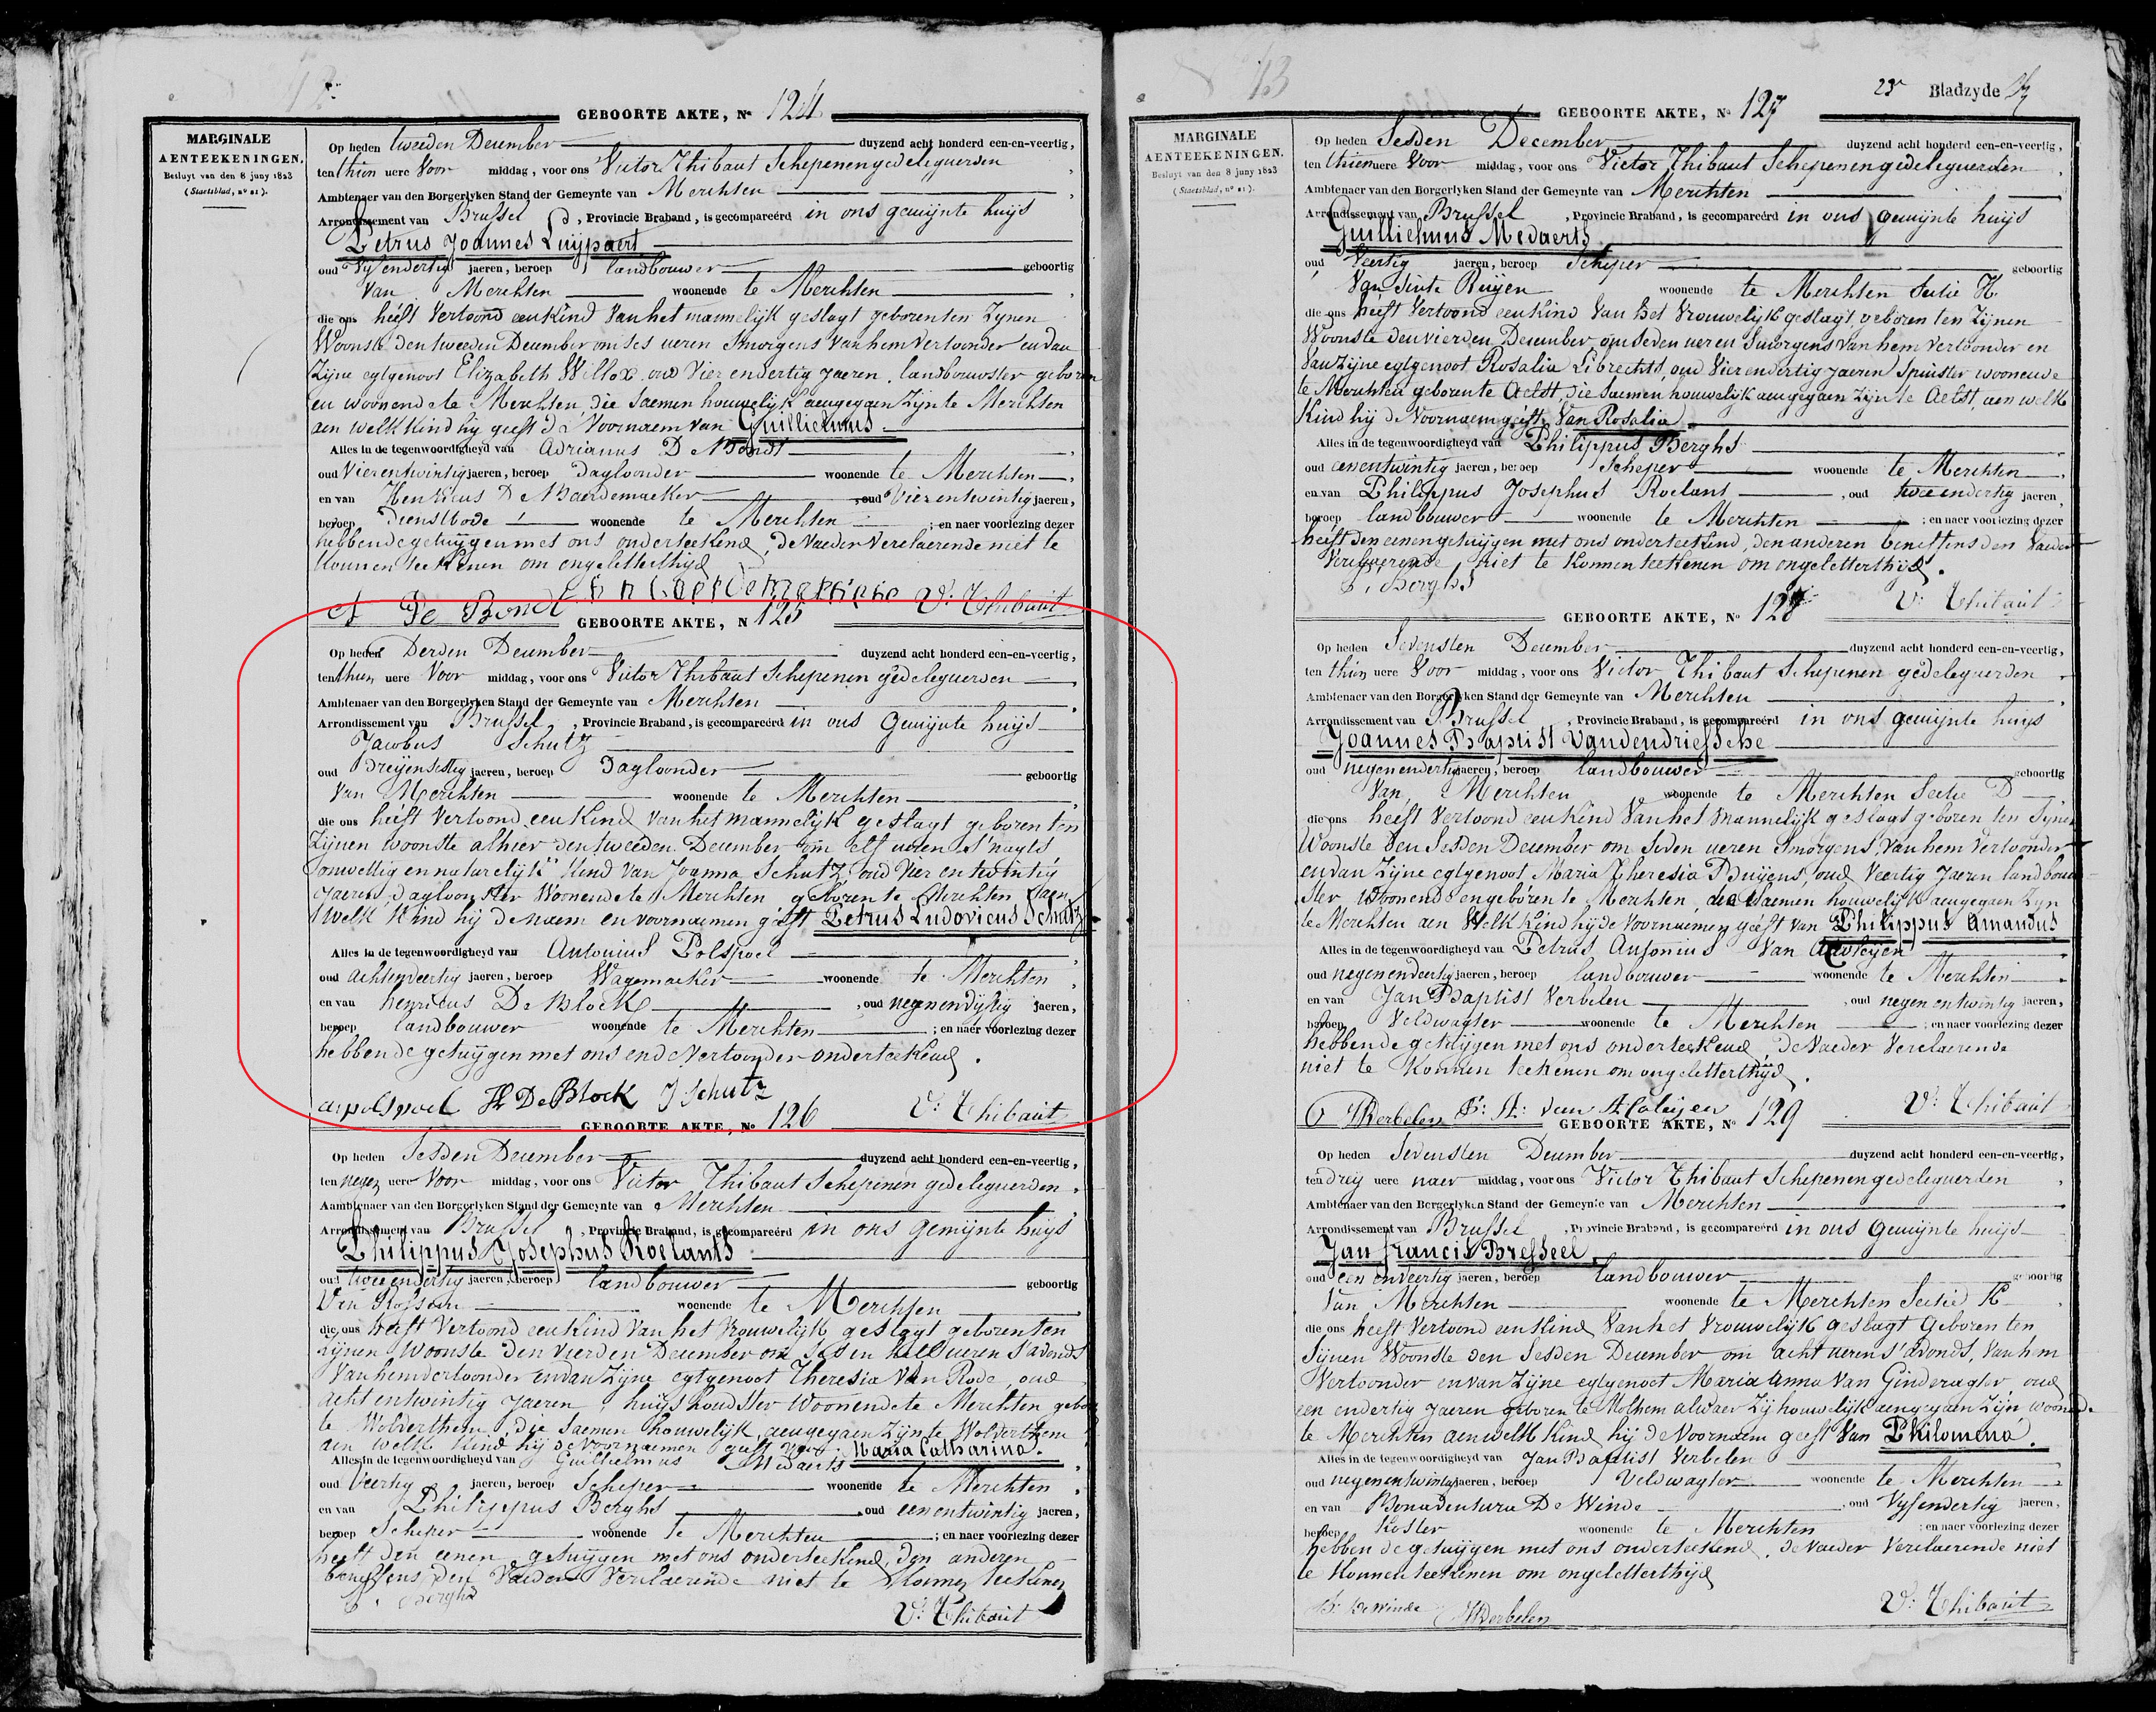 GEBOORTE AKTE, No 124
MARGINALE
AENTEEKENINGEN.
Besluyt van den 8 juny 1823
(Staetsblad, no 21).
Op heden tweeden December duyzend acht honderd een-en-veertig,
ten thien uere Voor middag, voor ons Victor Thibaut Schepenen gedelegueerden
Ambtenaer van den Borgerlyken Stand der Gemeynte van Merchten
Arrondissement van Brussel, Provincie Braband, is gecompareérd in ons gemijnte huijs
Petrus Joannes Luijpaert
oud Vijfendertig jaeren, beroep landbouwer geboortig
Van Merchten woonende te Merchten
die ons heéft Vertoond een Kind Van het mannelijk geslagt geboren ten Zijnen
Woonste den tweeden December om ses ueren Smorgens Van hem Vertoonder en Van
Zijne egtgenoot Elizabeth Willox oud Vier endertig Jaeren, landbouwster geboren
en woonende te Merchten, die Saemen houwelijk aengegaen Zijn te Merchten
aen welk Kind hy geeft de Voornaem Van Guillielmus
Alles in de tegenwoordigheyd van Adrianus De Bondt
oud Vierentwintig jaeren, beroep Dagloonder woonende te Merchten
en van Henricus De Baerdemaeker, oud Vier entwintig jaeren,
beroep Dienstbode woonende te Merchten ; en naer voorlezing dezer
hebben de getuijgen met ons onderteekend, de Vaeder Verclaerende niet te
Konnen teekenen om ongeletterthijd
A De Bondt V: Thibaut
GEBOORTE AKTE, N 125
Op heden Derden December duyzend acht honderd een-en-veertig,
ten thien uere Voor middag, voor ons Victor Thibaut Schepenen gedelegueerden
Ambtenaer van den Borgerlyken Stand der Gemeynte van Merchten
Arrondissement van Brussel, Provincie Braband, is gecompareérd in ons Gemijnte huijs
Jacobus Schutz
oud Dreijensestig jaeren, beroep Dagloonder geboortig
Van Merchten woonende te Merchten
die ons heéft Vertoond een Kind Van het mannelijk geslagt geboren ten
Zijnen woonste alhier den tweeden December om elf ueren s'nagts
onwettig en natuerelijk Kind van Joanna Schutz, oud Vier entwintig
Jaeren, dagloonster Woonende te Merchten geboren te Merchten aen
Welk Kind hij de naem en voornaemen géeft Petrus Ludovicus Schutz
Alles in de tegenwoordigheyd van Antonius Polspoel
oud achtenveertig jaeren, beroep Wagemaeker woonende te Merchten
en van henricus De Block, oud negenenvijftig jaeren,
beroep landbouwer woonende te Merchten ; en naer voorlezing dezer
hebben de getuijgen met ons en de Vertoonder onderteekend.
apolspoel H De Block J Schutz V: Thibaut
GEBOORTE AKTE, No 126
Op heden Sesden December duyzend acht honderd een-en-veertig,
ten negen uere Voor middag, voor ons Victor Thibaut Schepenen gedelegueerden
Aambtenaer van den Borgerlyken Stand der Gemeynte van Merchten
Arrondissement van Brussel, Provincie Braband, is gecompareérd in ons gemijnte huijs
Philippus Josephus Roelants
oud twee endertig jaeren, beroep landbouwer geboortig
Van Rossem woonende te Merchten
die ons heeft Vertoond een Kind Van het Vrouwelijk geslagt geboren ten
Zijnen Woonste den Vierden December om Seven ueren S'avends
Van hem Vertoonder en Van Zijne egtgenoot Theresia Van Rode, oud
acht entwintig Jaeren, huijshoudster Woonende te Merchten
te Wolverthem, die Saemen houwelijk aengegaen Zijn te Wolverthem
aen welk Kind hij de Voornaemen geeft Van Maria Catharina.
Alles in de tegenwoordigheyd van Guilhelmus Medaerts
oud Veertig jaeren, beroep Scheper woonende te Merchten
en van Philippus Berghs, oud eenentwintig jaeren,
beroep Scheper woonende te Merchten ; en naer voorlezing dezer
heeft den eenen getuijgen met ons onderteekend, den anderen
beneffens den Vaeder Verclaerende niet te Konnen teekenen
P. Berghs V: Thibaut
23e Bladzyde
GEBOORTE AKTE, No 127
MARGINALE
AENTEEKENINGEN.
Besluyt van den 8 juny 1823
(Staetsblad, no 21).
Op heden Sesden December duyzend acht honderd een-en-veertig,
ten thien uere Voor middag, voor ons Victor Thibaut Schepenen gedelegueerden
Ambtenaer van den Borgerlyken Stand der Gemeynte van Merchten
Arrondissement van Brussel, Provincie Braband, is gecompareérd in ons gemijnte huijs
Guillielmus Medaerts
oud Veertig jaeren, beroep Scheper geboortig
Van Sinte woonende te Merchten Sectie H.
die ons heéft Vertoond een Kind Van het Vrouwelijk geslagt geboren ten Zijnen
Woonste den vierden December om Seven ueren Smorgens Van hem Vertoonder en
Van Zijne egtgenoot Rosalia Librechts, oud Vier endertig Jaeren Spinster woonende
te Merchten geboren te Aelst, die Saemen houwelijk aengegaen Zijn te Aelst, aen welk
Kind hij de Voornaem géeft Van Rosalia
Alles in de tegenwoordigheyd van Philippus Berghs
oud eenentwintig jaeren, beroep Scheper woonende te Merchten
en van Philippus Josephus Roelant, oud tweeendertig jaeren,
beroep landbouwer woonende te Merchten ; en naer voorlezing dezer
heéft den eenen getuijgen met ons onderteekend, den anderen beneffens den Vaeder
Verclaerende niet te Konnen teekenen om ongeletterthijd.
P. Berghs V: Thibaut
GEBOORTE AKTE, No 128
Op heden Sevensten December duyzend acht honderd een-en-veertig,
ten thien uere Voor middag, voor ons Victor Thibaut Schepenen gedelegueerden
Ambtenaer van den Borgerlyken Stand der Gemeynte van Merchten
Arrondissement van Brussel, Provincie Braband, is gecompareérd in ons gemijnte huijs
Joannes Baptist Vandendriessche
oud negenendertig jaeren, beroep landbouwer geboortig
Van Merchten woonende te Merchten Sectie D
die ons heeft Vertoond een Kind Van het mannelijk geslagt geboren ten Sijnen
Woonste den Sesden December om Seven ueren Smorgens, Van hem Vertoonder
en Van Zijne egtgenoot Maria Theresia Buijens, oud Veertig Jaeren landbouw-
ster Woonende en geboren te Merchten, die Saemen houwelijk aengegaen Zijn
te Merchten aen Welk Kind hij de Voornaemen géeft Van Philippus Amandus
Alles in de tegenwoordigheyd van Petrus Antonius Van
oud negenendertig jaeren, beroep landbouwer woonende te Merchten
en van Jan Baptist Verbelen, oud negen entwintig jaeren,
beroep Veldwagter woonende te Merchten ; en naer voorlezing dezer
hebben de getuijgen met ons onderteekend, de Vaeder Verclaerende
niet te Konnen teekenen om ongeletterthijd.
JBVerbelen P: A: van V: Thibaut
GEBOORTE AKTE, No 129
Op heden Sevensten December duyzend acht honderd een-en-veertig,
ten drij uere naer middag, voor ons Victor Thibaut Schepenen gedelegueerden
Ambtenaer van den Borgerlyken Stand der Gemeynte van Merchten
Arrondissement van Brussel, Provincie Braband, is gecompareérd in ons Gemijnte huijs
Jan francis Bresseel
oud een enveertig jaeren, beroep landbouwer geboortig
Van Merchten woonende te Merchten Sectie K
die ons heeft Vertoond een Kind Van het Vrouwelijk geslagt Geboren ten
Sijnen Woonste den Sesden December om acht ueren s'avonds, Van hem
Vertoonder en van Zijne egtgenoot Maria Anna Van Ginderagter, oud
een endertig Jaeren geboren te Molhem alwaer Zij houwelijk aengegaen Zijn woonende
te Merchten aen welk Kind hij de Voornaem geeft Van Philomena.
Alles in de tegenwoordigheyd van Jan Baptist Verbelen
oud negenentwintig jaeren, beroep Veldwagter woonende te Merchten
en van Bonaventura De Winde, oud Vijfendertig jaeren,
beroep Koster woonende te Merchten ; en naer voorlezing dezer
hebben de getuijgen met ons onderteekend, de Vaeder Verclaerende niet
te Konnen teekenen om ongeletterthijd
B: DeWinde JBVerbelen V: Thibaut